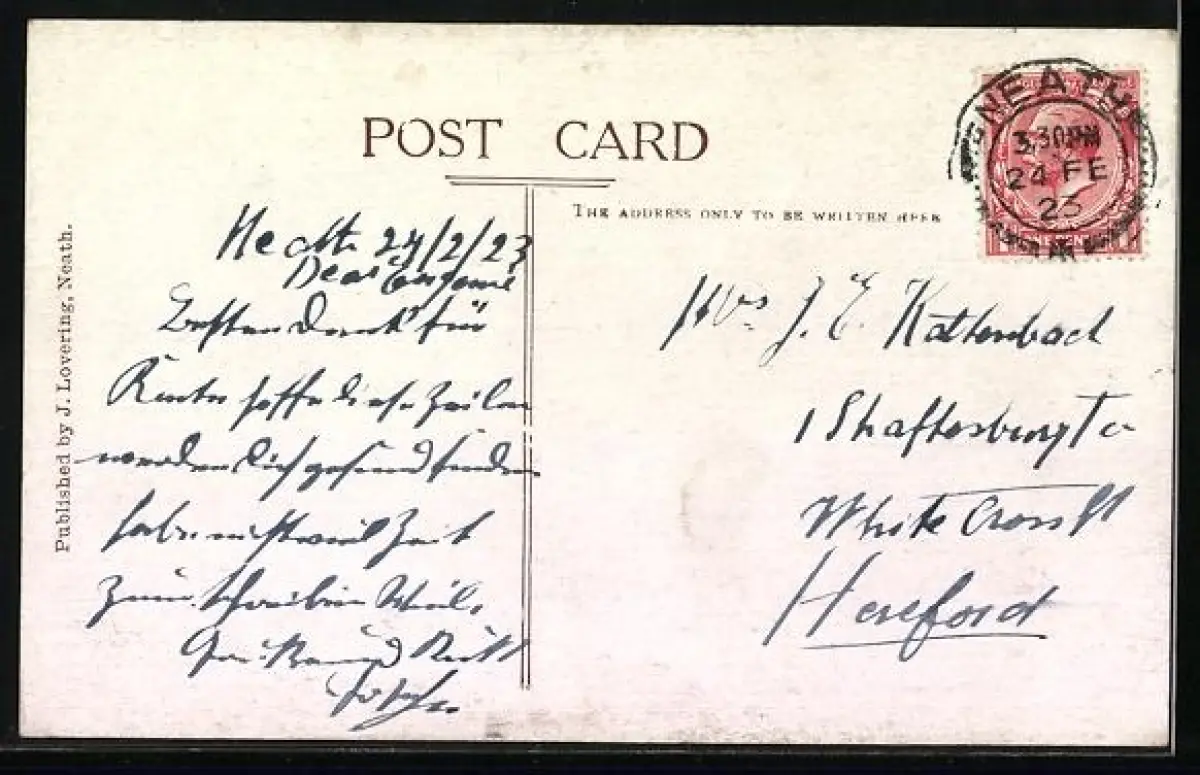 POST CARD
THE ADDRESS ONLY TO BE WRITTEN HERE
Published by J. Lovering, Neath.
NEATH
3.30 PM
24 FE
23
Neath 24/2/23
Dear
Besten Dank für
Karte hoffe diese Zeilen
werden dich gesund finden
habe nicht viel Zeit
zum schreiben Viele
Gruß und Kuß
Mrs J. E. Kattenbach
1 Shaftesbury Te
White Cross St
Hereford